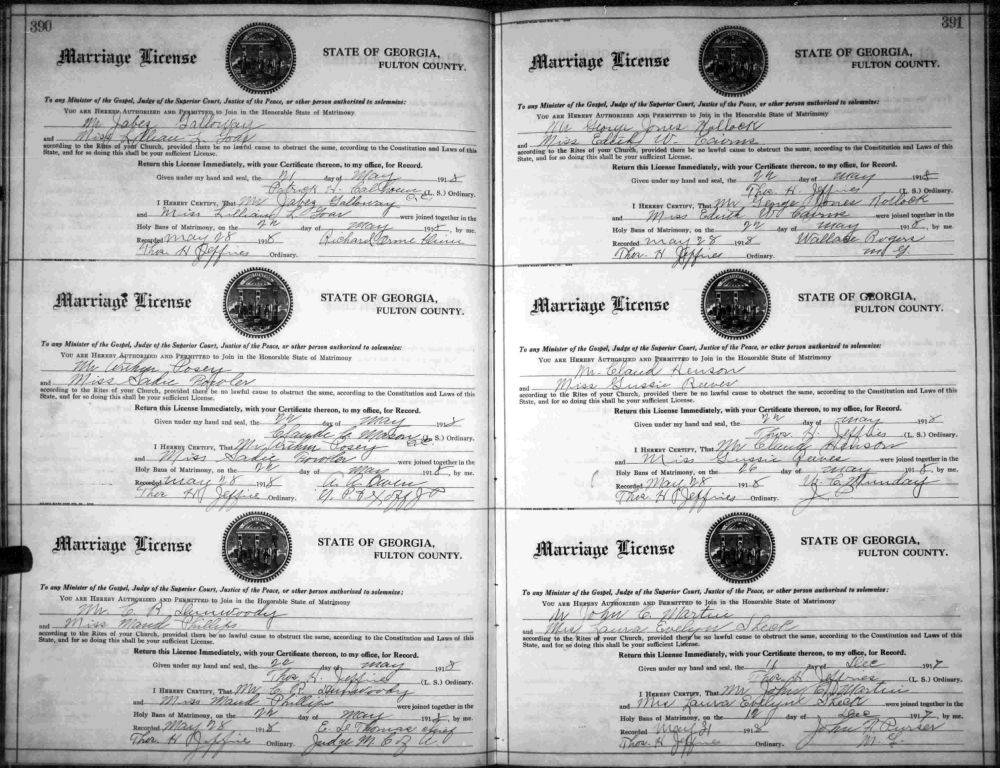 390
Marriage License
STATE OF GEORGIA,
FULTON COUNTY.
To any Minister of the Gospel, Judge of the Superior Court, Justice of the Peace, or other person authorized to solemnize:
YOU ARE HEREBY AUTHORIZED AND PERMITTED to Join in the Honorable State of Matrimony
Mr Jabez Galloway
and Miss Lillian L.
according to the Rites of your Church, provided there be no lawful cause to obstruct the same, according to the Constitution and Laws of this
State, and for so doing this shall be your sufficient License.
Return this License Immediately, with your Certificate thereon, to my office, for Record.
Given under my hand and seal, the 21 day of May 1918
Patrick H. Calhoun (L. S.) Ordinary.
I HEREBY CERTIFY, That Mr Jabez Galloway
and Miss Lillian L. were joined together in the
Holy Bans of Matrimony, on the 22 day of May 1918, by me.
Recorded May 28 1918 Richard Orme
Thos H Jeffries Ordinary.
Marriage License
STATE OF GEORGIA,
FULTON COUNTY.
To any Minister of the Gospel, Judge of the Superior Court, Justice of the Peace, or other person authorized to solemnize:
YOU ARE HEREBY AUTHORIZED AND PERMITTED to Join in the Honorable State of Matrimony
Mr Arthur Posey
and Miss Sadie
according to the Rites of your Church, provided there be no lawful cause to obstruct the same, according to the Constitution and Laws of this
State, and for so doing this shall be your sufficient License.
Return this License Immediately, with your Certificate thereon, to my office, for Record.
Given under my hand and seal, the 22 day of May 1918
Claude C. Mason (L. S.) Ordinary.
I HEREBY CERTIFY, That Mr Arthur Posey
and Miss Sadie were joined together in the
Holy Bans of Matrimony, on the 22 day of May 1918, by me.
Recorded May 28 1918 Owen
Thos H Jeffries Ordinary.
Marriage License
STATE OF GEORGIA,
FULTON COUNTY.
To any Minister of the Gospel, Judge of the Superior Court, Justice of the Peace, or other person authorized to solemnize:
YOU ARE HEREBY AUTHORIZED AND PERMITTED to Join in the Honorable State of Matrimony
Mr C R Dunwoody
and Miss Maud Phillips
according to the Rites of your Church, provided there be no lawful cause to obstruct the same, according to the Constitution and Laws of this
State, and for so doing this shall be your sufficient License.
Return this License Immediately, with your Certificate thereon, to my office, for Record.
Given under my hand and seal, the 22 day of May 1918
Thos H. Jeffries (L. S.) Ordinary.
I HEREBY CERTIFY, That Mr C. R. Dunwoody
and Miss Maud Phillips were joined together in the
Holy Bans of Matrimony, on the 22 day of May 1918, by me.
Recorded May 28 1918 Thomas Chief
Thos H Jeffries Ordinary. Judge M. C.
391
Marriage License
STATE OF GEORGIA,
FULTON COUNTY.
To any Minister of the Gospel, Judge of the Superior Court, Justice of the Peace, or other person authorized to solemnize:
YOU ARE HEREBY AUTHORIZED AND PERMITTED to Join in the Honorable State of Matrimony
Mr George Jones Kollock
and Miss Edith W. Cairns
according to the Rites of your Church, provided there be no lawful cause to obstruct the same, according to the Constitution and Laws of this
State, and for so doing this shall be your sufficient License.
Return this License Immediately, with your Certificate thereon, to my office, for Record.
Given under my hand and seal, the 22 day of May 1918
Thos. H. Jeffries (L. S.) Ordinary.
I HEREBY CERTIFY, That Mr George Jones Kollock
and Miss Edith W. Cairns were joined together in the
Holy Bans of Matrimony, on the 22 day of May 1918, by me.
Recorded May 28 1918 Wallace Rogers
Thos. H Jeffries Ordinary. M G.
Marriage License
STATE OF GEORGIA,
FULTON COUNTY.
To any Minister of the Gospel, Judge of the Superior Court, Justice of the Peace, or other person authorized to solemnize:
YOU ARE HEREBY AUTHORIZED AND PERMITTED to Join in the Honorable State of Matrimony
Mr Claud Henson
and Miss Gussie Reeves
according to the Rites of your Church, provided there be no lawful cause to obstruct the same, according to the Constitution and Laws of this
State, and for so doing this shall be your sufficient License.
Return this License Immediately, with your Certificate thereon, to my office, for Record.
Given under my hand and seal, the 22 day of May 1918
Thos. H Jeffries (L. S.) Ordinary.
I HEREBY CERTIFY, That Mr Claud Henson
and Miss Gussie Reeves were joined together in the
Holy Bans of Matrimony, on the 26 day of May 1918, by me.
Recorded May 28 1918 C. Munday
Thos. H Jeffries Ordinary.
Marriage License
STATE OF GEORGIA,
FULTON COUNTY.
To any Minister of the Gospel, Judge of the Superior Court, Justice of the Peace, or other person authorized to solemnize:
YOU ARE HEREBY AUTHORIZED AND PERMITTED to Join in the Honorable State of Matrimony
Mr John C. Martin
and Mrs Laura Evelyn
according to the Rites of your Church, provided there be no lawful cause to obstruct the same, according to the Constitution and Laws of this
State, and for so doing this shall be your sufficient License.
Return this License Immediately, with your Certificate thereon, to my office, for Record.
Given under my hand and seal, the 16 day of Dec 1917
Thos. H. Jeffries (L. S.) Ordinary.
I HEREBY CERTIFY, That Mr John C. Martin
and Mrs Laura Evelyn were joined together in the
Holy Bans of Matrimony, on the day of Dec 1917, by me.
Recorded May 31 1918 John F. Purser
Thos. H Jeffries Ordinary. M. G.